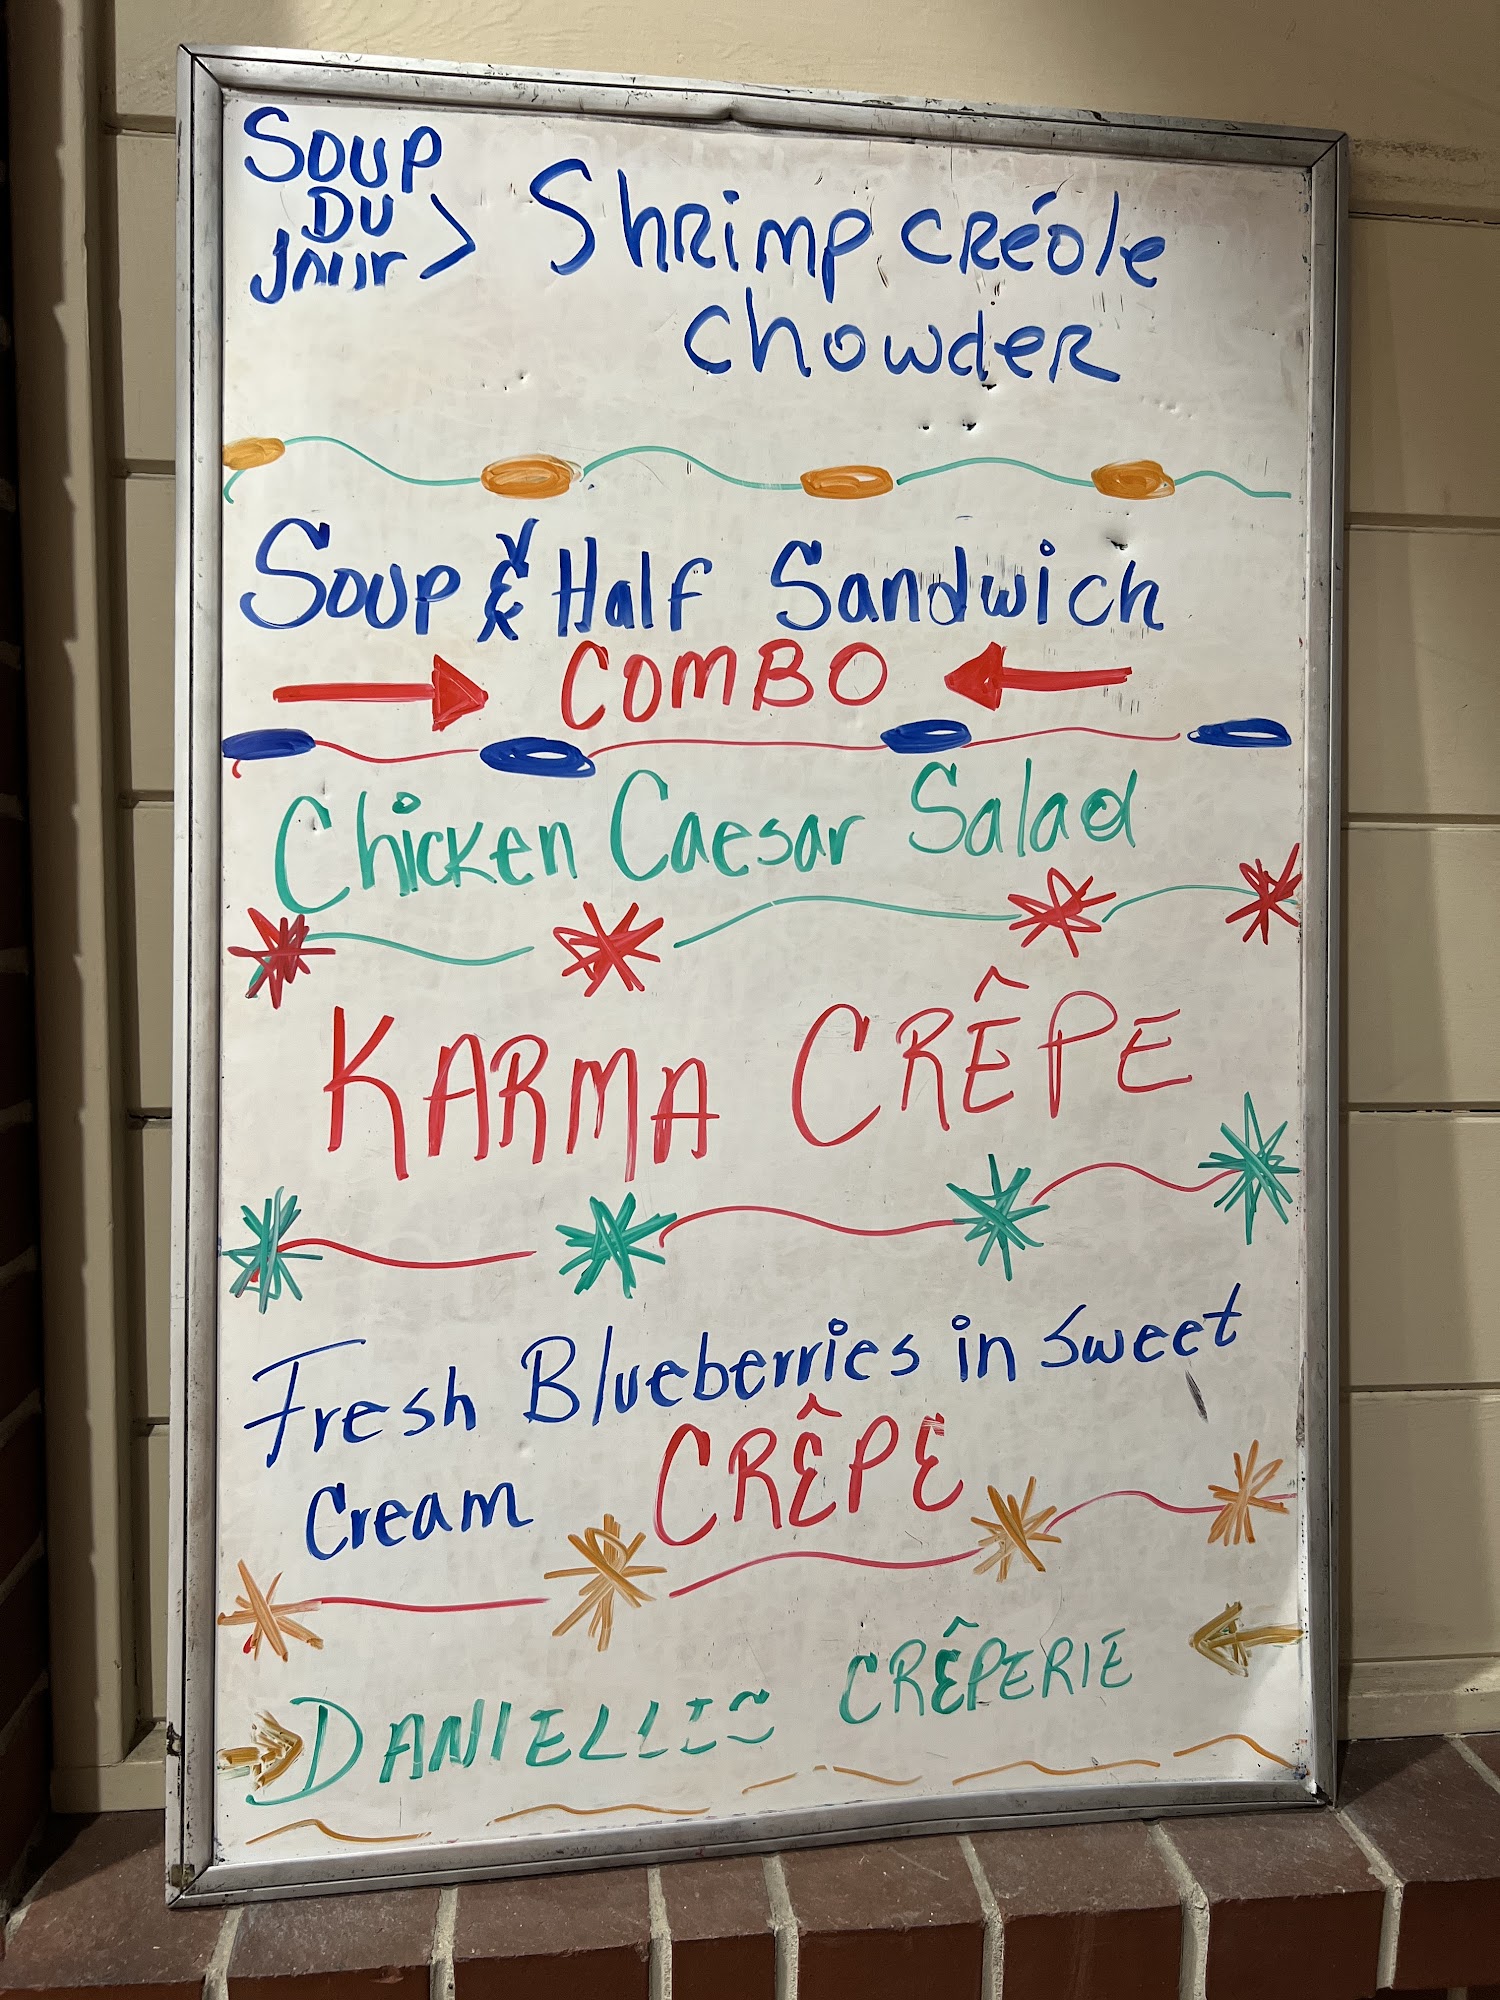 SOUP
DU
Jour > Shrimp créole
chowder
Soup & Half Sandwich
COMBO
Chicken Caesar Salad
KARMA CRÊPE
Fresh Blueberries in Sweet
Cream CRÊPE
DANIELLES CRÊPERIE